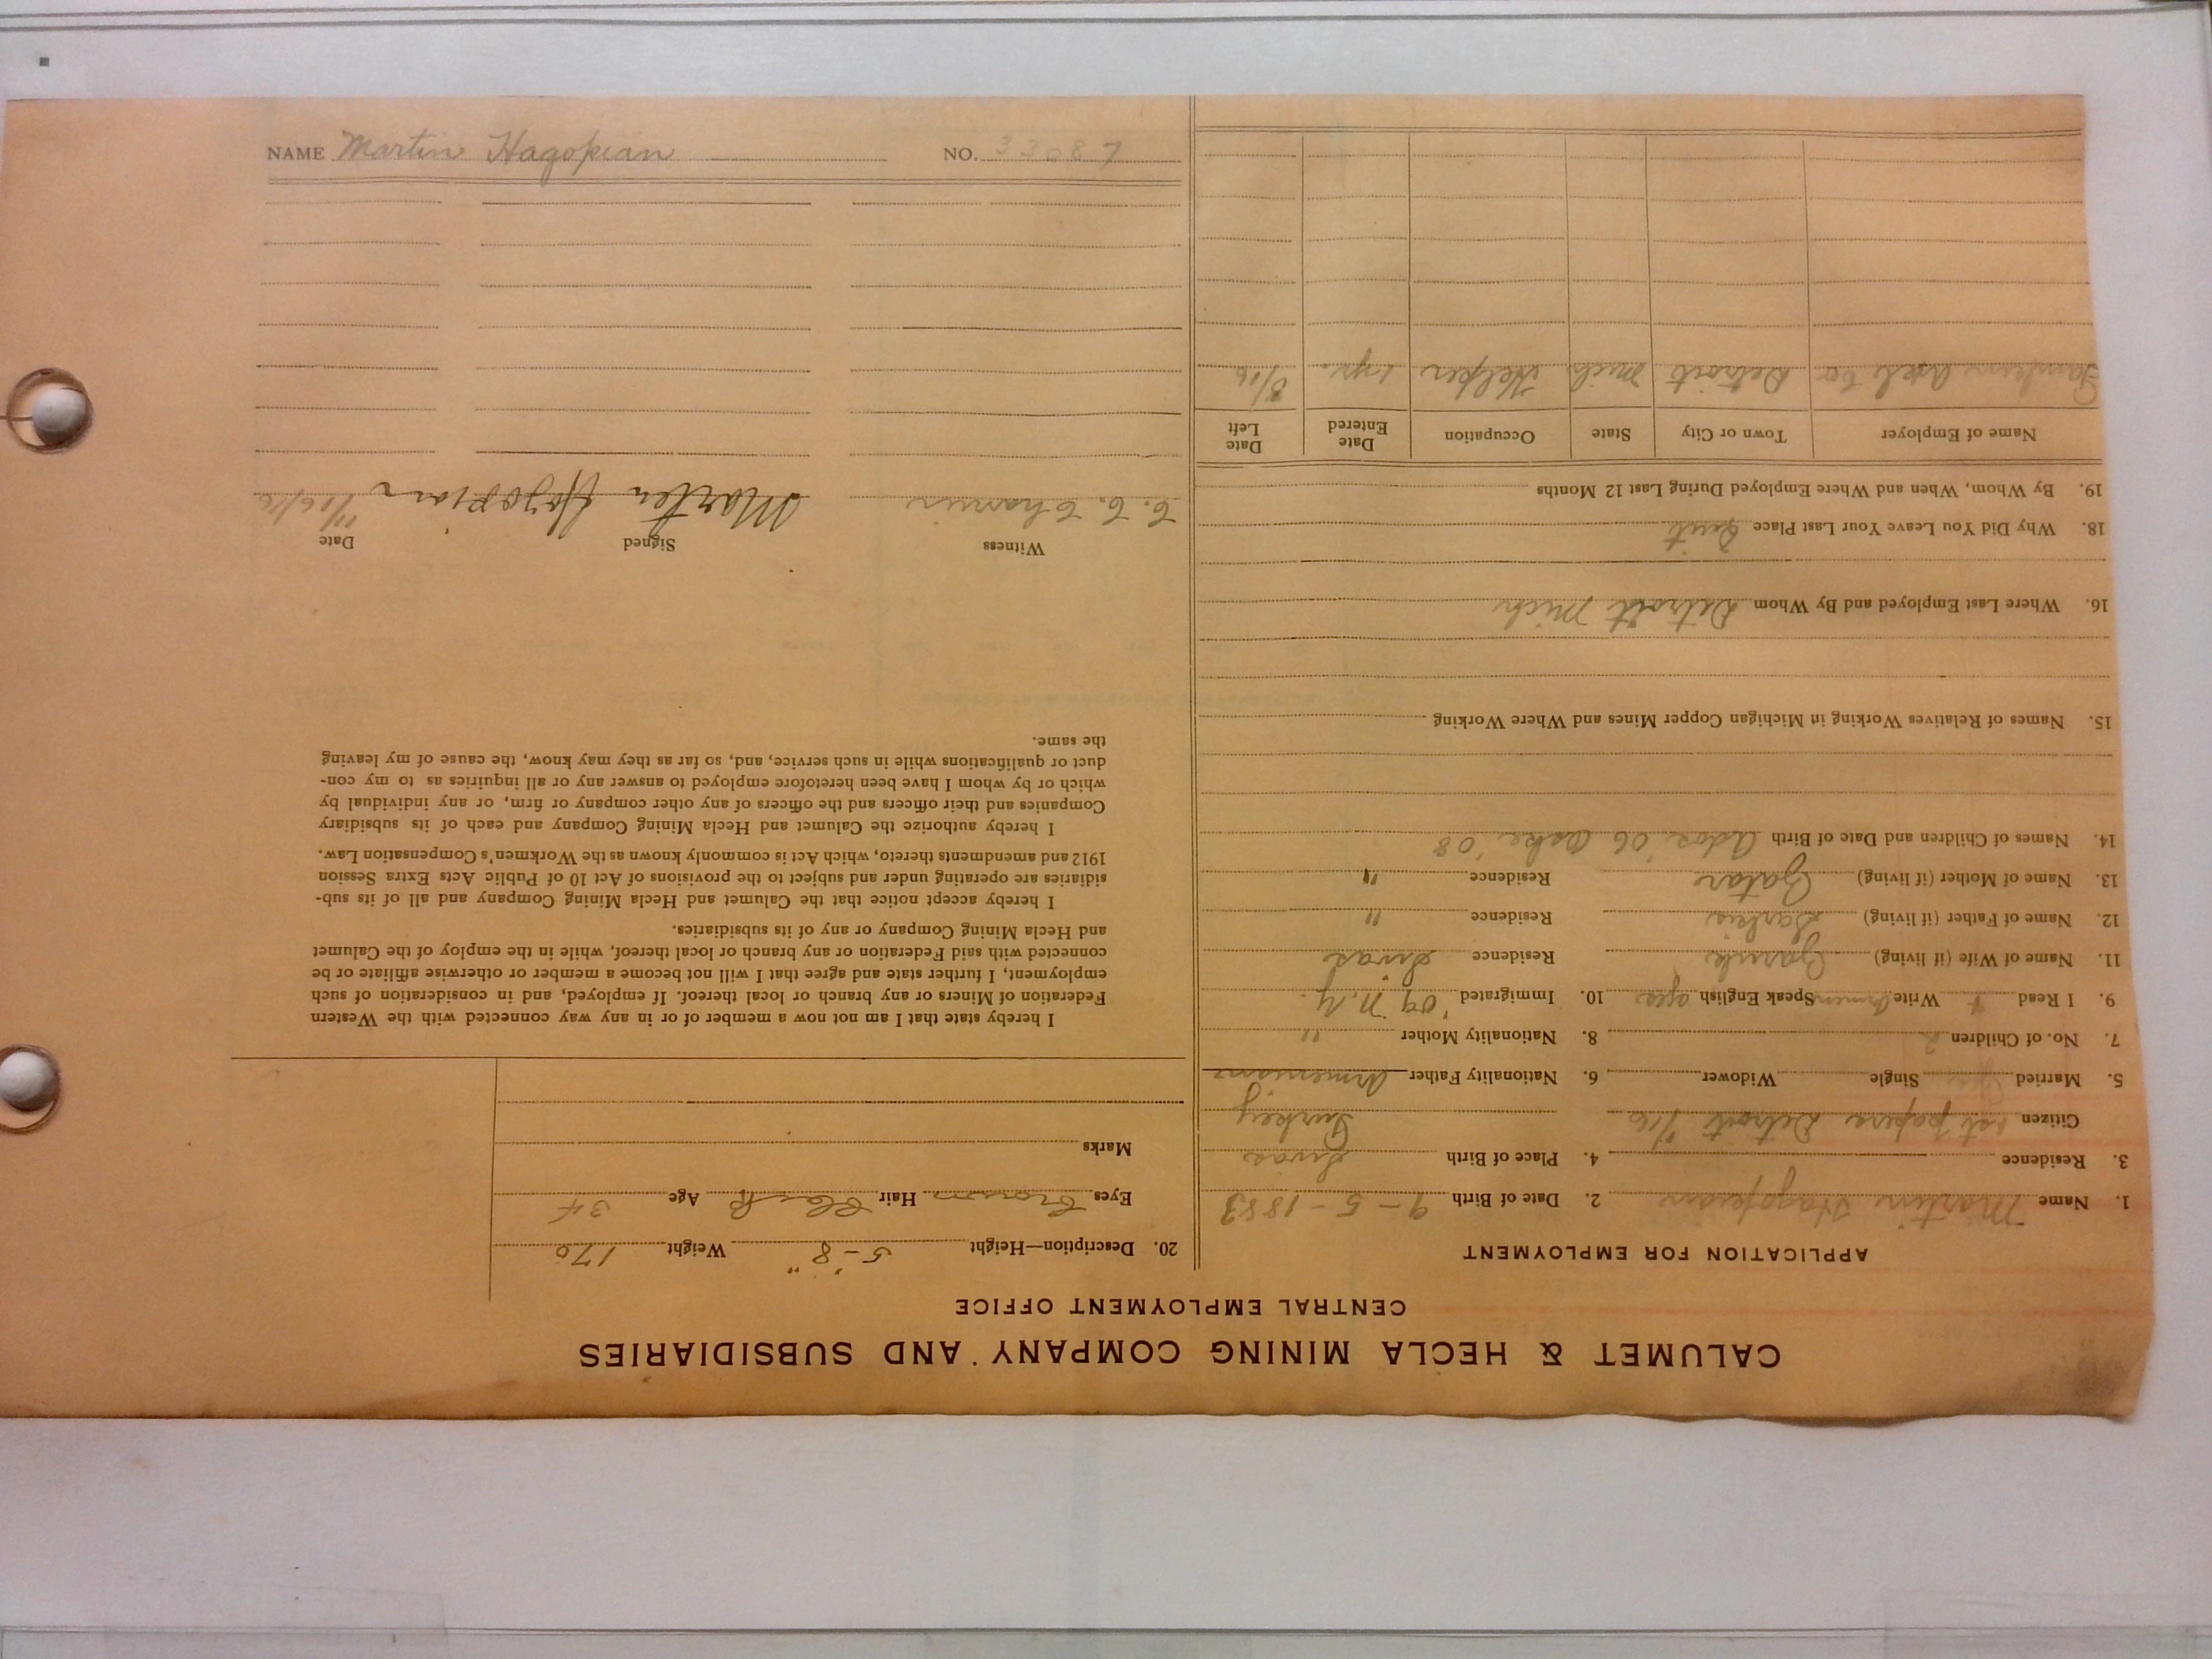 CALUMET & HECLA MINING COMPANY AND SUBSIDIARIES
CENTRAL EMPLOYMENT OFFICE
APPLICATION FOR EMPLOYMENT
1. Name Martin Hagopian 2. Date of Birth 9-5-1883
3. Residence 4. Place of Birth Sivas
Citizen 1st papers Detroit 1/16 Turkey
5. Married Single Widower 6. Nationality Father Armenian
7. No. of Children 2 8. Nationality Mother "
9. I Read Write Speak English yes 10. Immigrated '09 N.Y.
11. Name of Wife (if living) Residence Sivas
12. Name of Father (if living) Sarkis Residence "
13. Name of Mother (if living) Residence "
14. Names of Children and Date of Birth '06 '08
15. Names of Relatives Working in Michigan Copper Mines and Where Working
16. Where Last Employed and By Whom Detroit Mich
18. Why Did You Leave Your Last Place Quit
19. By Whom, When and Where Employed During Last 12 Months
Name of Employer Town or City State Occupation Date Entered Date Left
Co Detroit Mich Helper 1 yr. 8/16
20. Description—Height 5'-8" Weight 170
Eyes Brown Hair Black Age 34
Marks
I hereby state that I am not now a member of or in any way connected with the Western
Federation of Miners or any branch or local thereof. If employed, and in consideration of such
employment, I further state and agree that I will not become a member or otherwise affiliate or be
connected with said Federation or any branch or local thereof, while in the employ of the Calumet
and Hecla Mining Company or any of its subsidiaries.
I hereby accept notice that the Calumet and Hecla Mining Company and all of its sub-
sidiaries are operating under and subject to the provisions of Act 10 of Public Acts Extra Session
1912 and amendments thereto, which Act is commonly known as the Workmen's Compensation Law.
I hereby authorize the Calumet and Hecla Mining Company and each of its subsidiary
Companies and their officers and the officers of any other company or firm, or any individual by
which or by whom I have been heretofore employed to answer any or all inquiries as to my con-
duct or qualifications while in such service, and, so far as they may know, the cause of my leaving
the same.
Witness Signed Date
Marten Hogopian
NAME Martin Hagopian NO. 33087